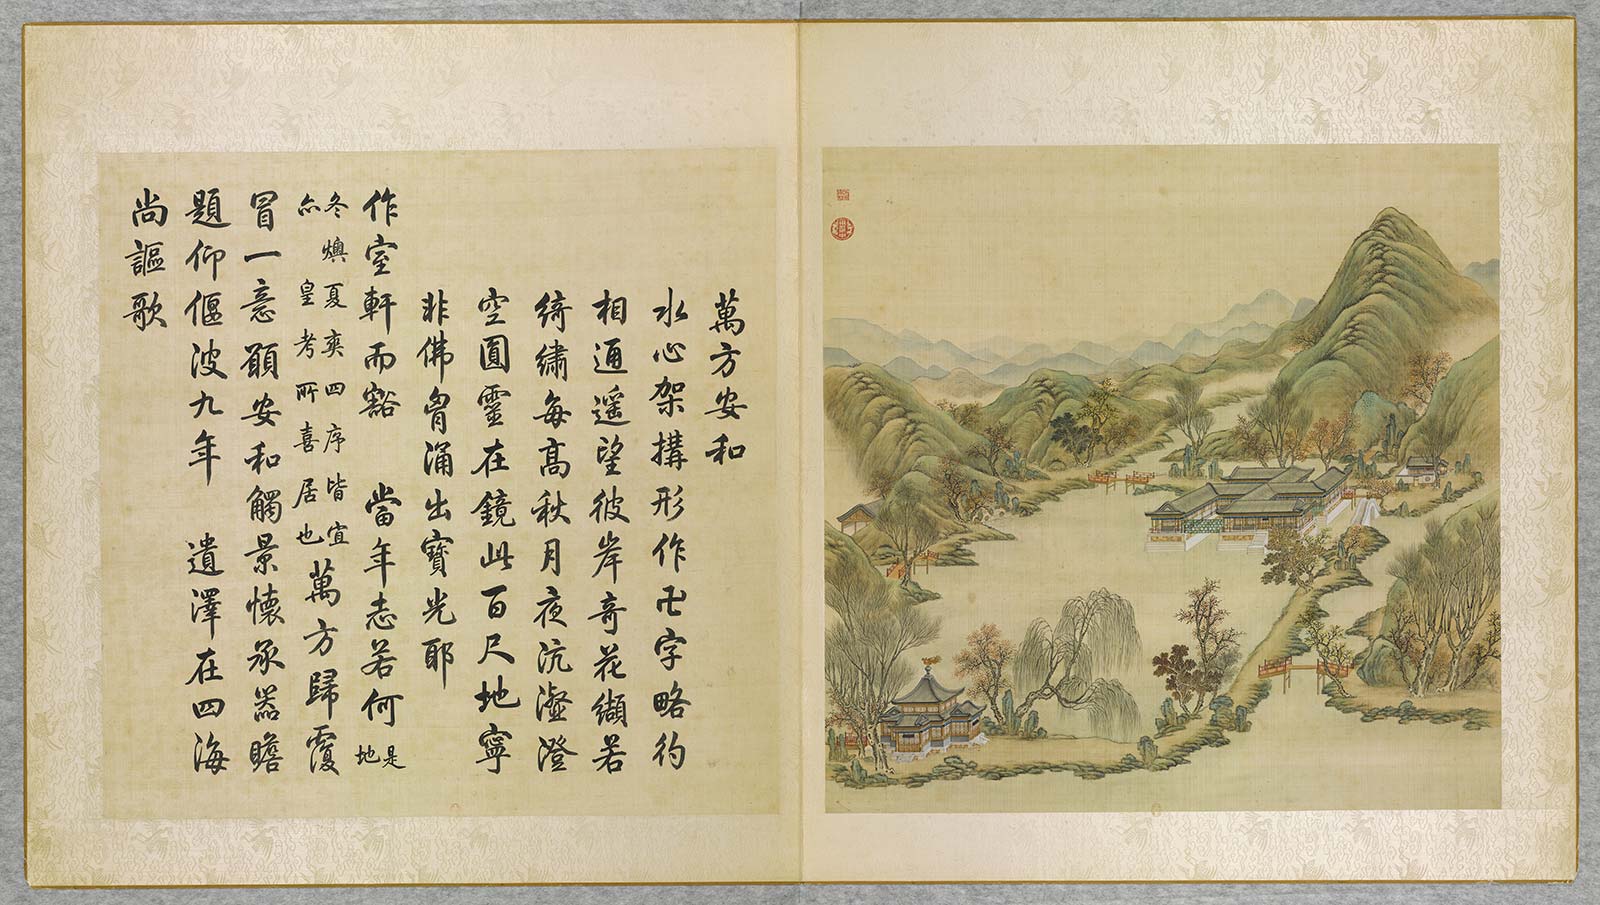 萬方安和
水心架構形作卍字略彴
相通遥望彼岸奇花纈若
綺繡每高秋月夜沆瀣澄
空圓靈在鏡此百尺地寧
非佛胷涌出寶光耶
作室軒而豁 當年志若何 是地
冬燠夏爽四序皆宜亦皇考所喜居也 萬方歸覆
冒一意願安和觸景懷承器瞻
題仰偃波九年 遺澤在四海
尚謳歌